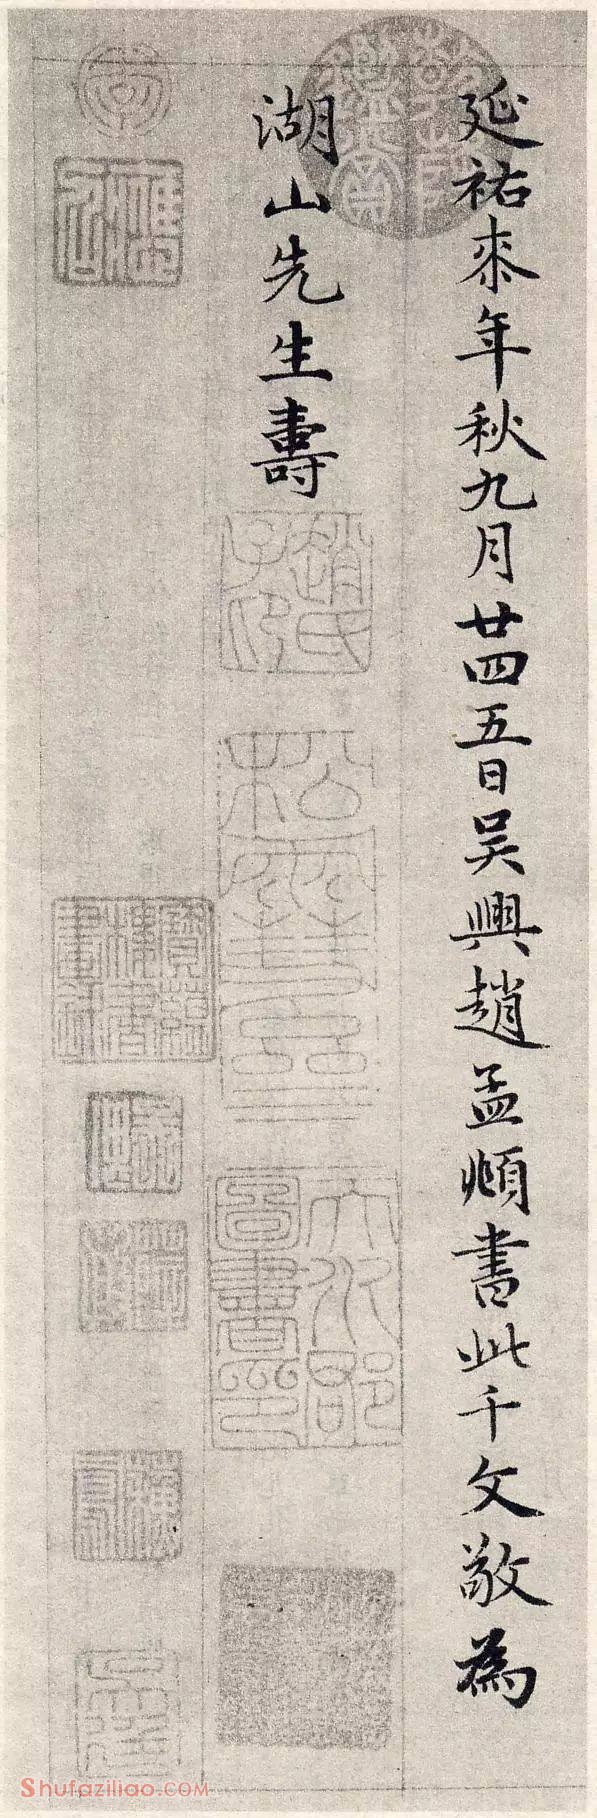 延祐桼年秋九月廿四五日吴興趙孟頫書此千文敬為
湖山先生壽
趙氏子昂
松雪齋
天水郡圖書印
寶蘊樓書畫錄
Shufaziliao.COM